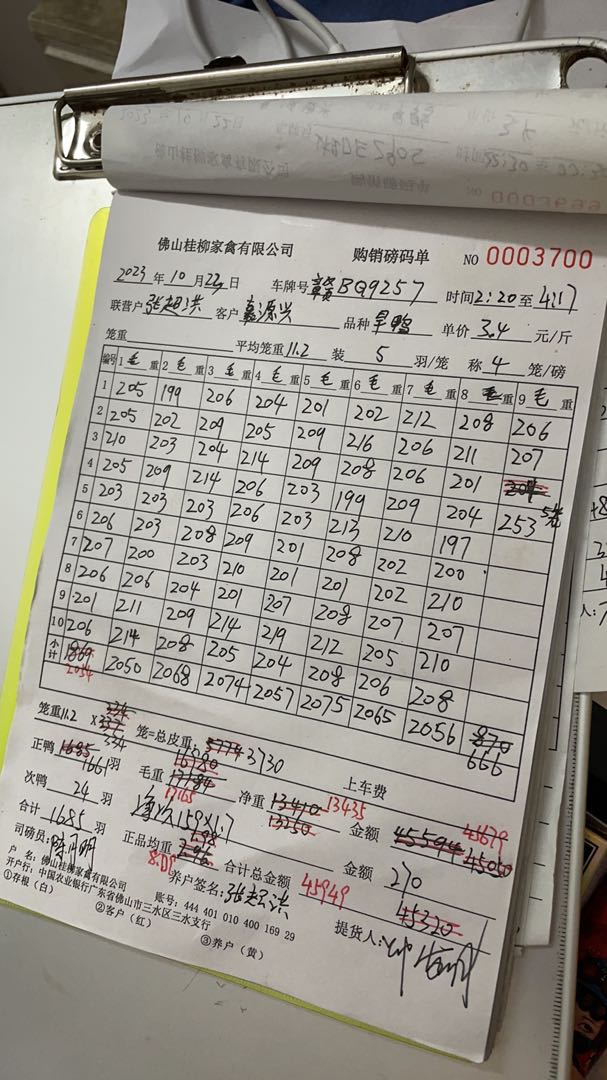 佛山桂柳家禽有限公司 购销磅码单 NO 0003700
2023 年 10 月 23 日 车牌号 赣BQ9257 时间 2:20 至 4:17
联营户 张超洪 客户 嘉源兴 品种 旱鸭 单价 3.4 元/斤
笼重 平均笼重 11.2 装 5 羽/笼 称 4 笼/磅
编号 1 毛 重 2 毛 重 3 毛 重 4 毛 重 5 毛 重 6 毛 重 7 毛 重 8 毛 重 9 毛 重
1 205 199 206 204 201 202 212 208 206
2 205 202 209 205 209 216 206 211 207
3 210 203 204 214 209 208 206 201 204
4 205 209 214 206 203 199 209 204 253 5笼
5 203 203 203 206 203 213 210 197
6 206 203 208 209 201 208 202 200
7 207 200 203 210 201 201 202 210
8 206 206 204 201 207 208 207 207
9 201 211 209 214 219 212 205 210
10 206 214 208 205 204 208 206 208
小计 1869 2054 2050 2068 2074 2057 2075 2065 2056 870 666
笼重 11.2 × 334 笼=总皮重 3730 上车费
正鸭 1685 1661 羽 毛重 17184 17165 净重 13410 13435 13250 金额 45594 45679 45050
次鸭 24 羽 净次159×1.7 金额 270
合计 1685 羽 正品均重 8.08 合计总金额 45949 45320
司磅员: 养户签名: 张超洪 提货人:
户 名: 佛山桂柳家禽有限公司 账号: 444 401 010 400 169 29
开户行: 中国农业银行广东省佛山市三水区三水支行
①存根（白） ②客户（红） ③养户（黄）